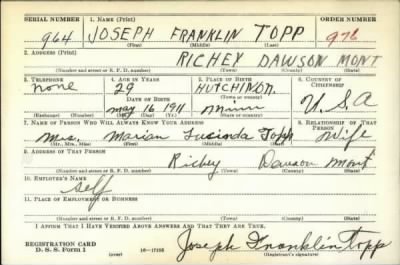 SERIAL NUMBER 1. NAME (Print) ORDER NUMBER
964 JOSEPH FRANKLIN TOPP 976
(First) (Middle) (Last)
2. ADDRESS (Print)
RICHEY DAWSON MONT
(Number and street or R. F. D. number) (Town) (County) (State)
3. TELEPHONE 4. AGE IN YEARS 5. PLACE OF BIRTH 6. COUNTRY OF CITIZENSHIP
none 29 HUTCHINSON.
DATE OF BIRTH (Town or county)
May 16 1911 Minn U.S.A
(Exchange) (Number) (Mo.) (Day) (Yr.) (State or country)
7. NAME OF PERSON WHO WILL ALWAYS KNOW YOUR ADDRESS 8. RELATIONSHIP OF THAT PERSON
Mrs. Marian Lucinda Topp Wife
(Mr., Mrs., Miss) (First) (Middle) (Last)
9. ADDRESS OF THAT PERSON
Richey Dawson Mont
(Number and street or R. F. D. number) (Town) (County) (State)
10. EMPLOYER'S NAME
Self
11. PLACE OF EMPLOYMENT OR BUSINESS
(Number and street or R. F. D. number) (Town) (County) (State)
I AFFIRM THAT I HAVE VERIFIED ABOVE ANSWERS AND THAT THEY ARE TRUE.
REGISTRATION CARD
D. S. S. Form 1 (over) 16-17105
Joseph Franklin Topp
(Registrant's signature)